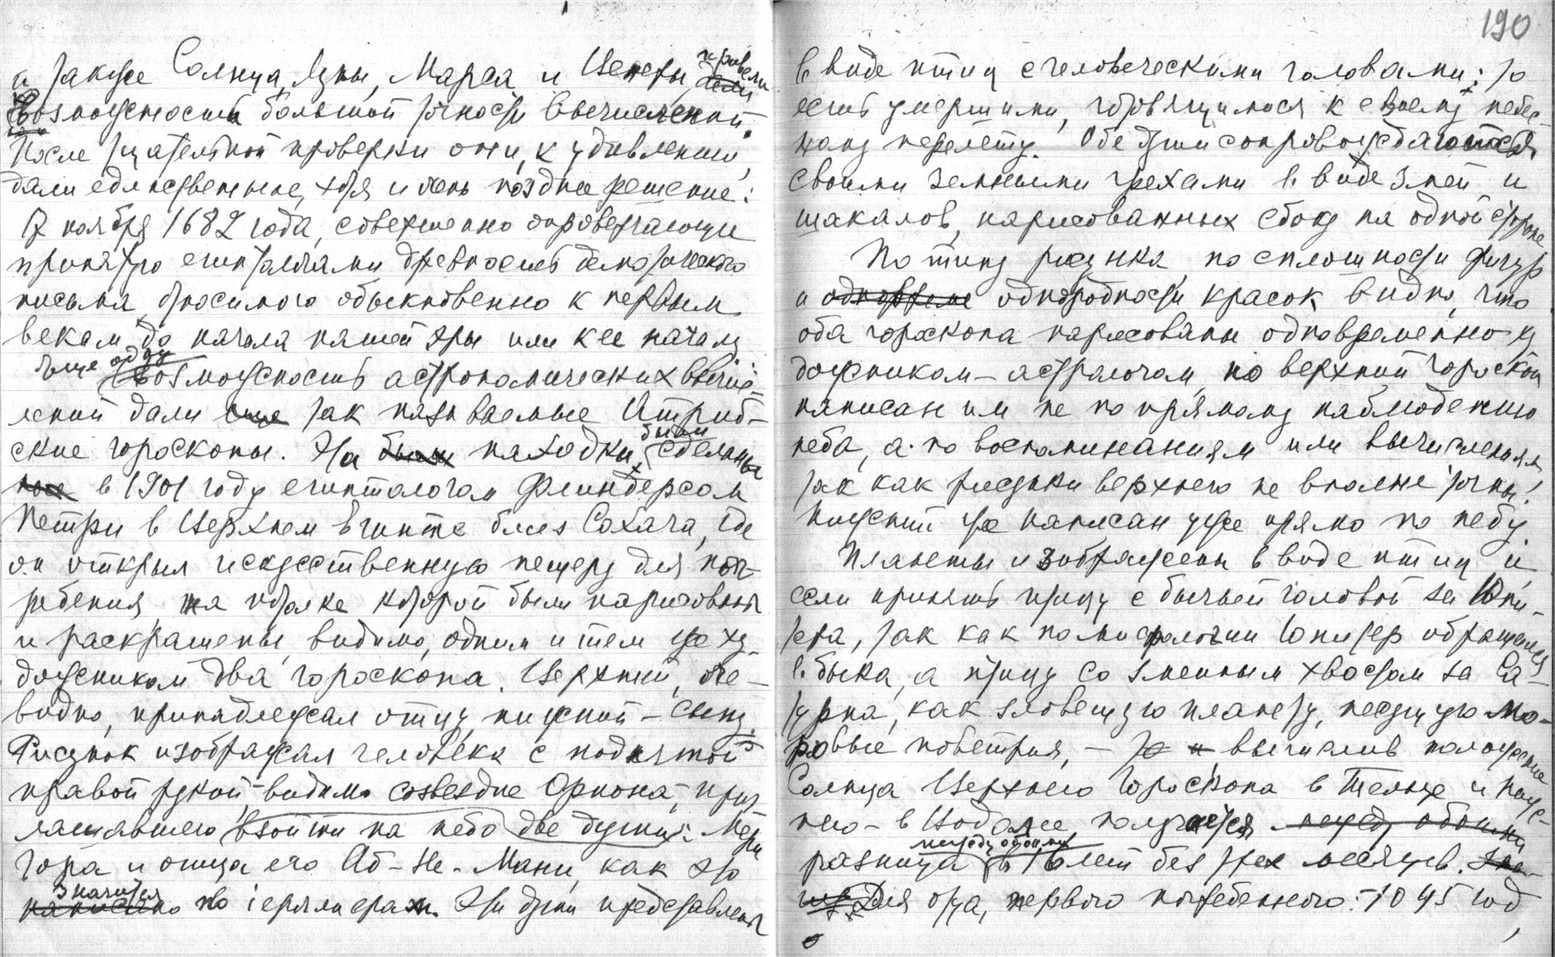 и также Солнца, Луны, Марса и Венеры привели
к возможности большой точности вычислений.
После тщательной проверки они, к удивлению,
дали единственное, хотя и очень позднее решение:
17 ноября 1682 года, совершенно опровергающее
принятую египтологами древность демотического
письма, относимого обыкновенно к первым
векам до начала нашей эры или к ее началу
Еще одну возможность астрономических вычис-
лений дали так называемые Атриб-
ские гороскопы. Эта находка была сделана
в 1901 году египтологом Флиндерсом
Петри в Верхнем Египте близ Сохача, где
он открыл искусственную пещеру для пог-
ребения на потолке которой были нарисованы
и раскрашены, видимо, одним и тем же ху-
дожником два гороскопа. Верхний, оче-
видно, принадлежал отцу, нижний – сыну.
Рисунок изображал человека с поднятой
правой рукой – видимо созвездие Ориона, приг
лашавшего взойти на небо две души: Мери
Гора и отца его Аб-Не-Мани, как это
значится по иероглифам. Эти души представлены
190
в виде птиц с человеческими головами: то
есть умершими, готовящимися к своему небес-
ному перелёту. Обе души сопровождаются
своими земными грехами в виде змей и
шакалов, нарисованных сбоку на одной стороне
По типу рисунка, по сплошности фигур
и однородности красок видно, что
оба гороскопа нарисованы одновременно и
художником-астрологом, но верхний гороскоп
написан им не по прямому наблюдению
неба, а по воспоминаниям или вычислениям
так как рисунки верхнего не вполне точны!
Нижний же написан уже прямо по небу
Планеты изображены в виде птиц и
если принять птицу с бычьей головой за Юпи-
тера, так как по мифологии Юпитер обращался
в быка, а птицу со змеиным хвостом за Са-
турна, как зловещую планету, несущую мо-
ровые поветрия, – то вычислив положение
Солнца Верхнего Гороскопа в Тельце и Ниж-
него – в Водолее, получится
разница между обоими в 16 лет без трех месяцев.
Для отца, первого погребенного: – 1045 год